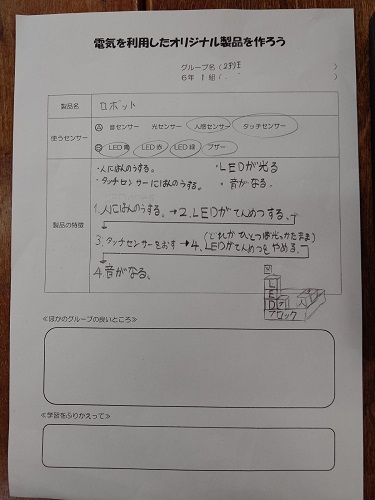 電気を利用したオリジナル製品を作ろう
グループ名(2班 )
6年 1組( )
製品名 ロボット
使うセンサー
Ⓐ 音センサー 光センサー 人感センサー タッチセンサー
Ⓑ LED青 LED赤 LED緑 ブザー
製品の特徴
・人にはんのうする。 ・LEDが光る
・タッチセンサーにはんのうする。 ・音がなる。
1.人にはんのうする。→2.LEDがてんめつする。
(どれかひとつは光ったまま)
3.タッチセンサーをおす→4.LEDがてんめつをやめる。
4.音がなる、
L
E
D
人
ブロック
≪ほかのグループの良いところ≫
≪学習をふりかえって≫